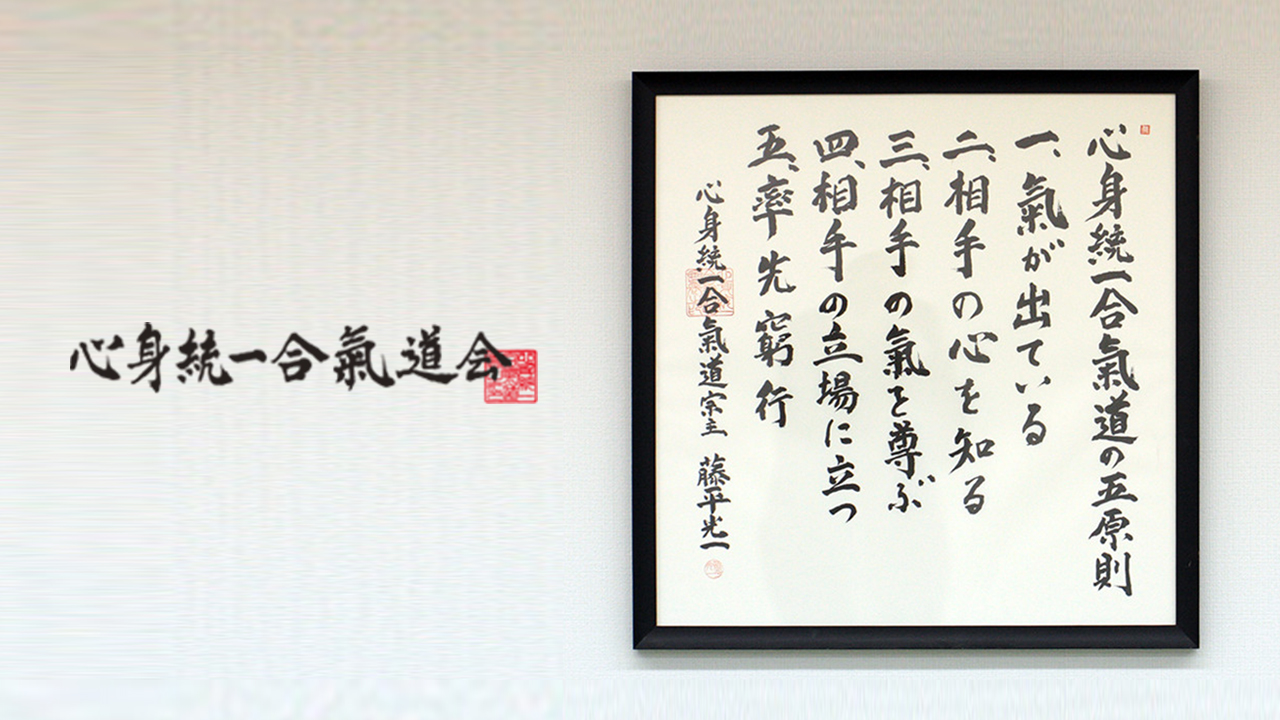 心身統一合氣道会
心身統一合氣道の五原則
一、氣が出ている
二、相手の心を知る
三、相手の氣を尊ぶ
四、相手の立場に立つ
五、率先窮行
心身統一合氣道宗主 藤平光一